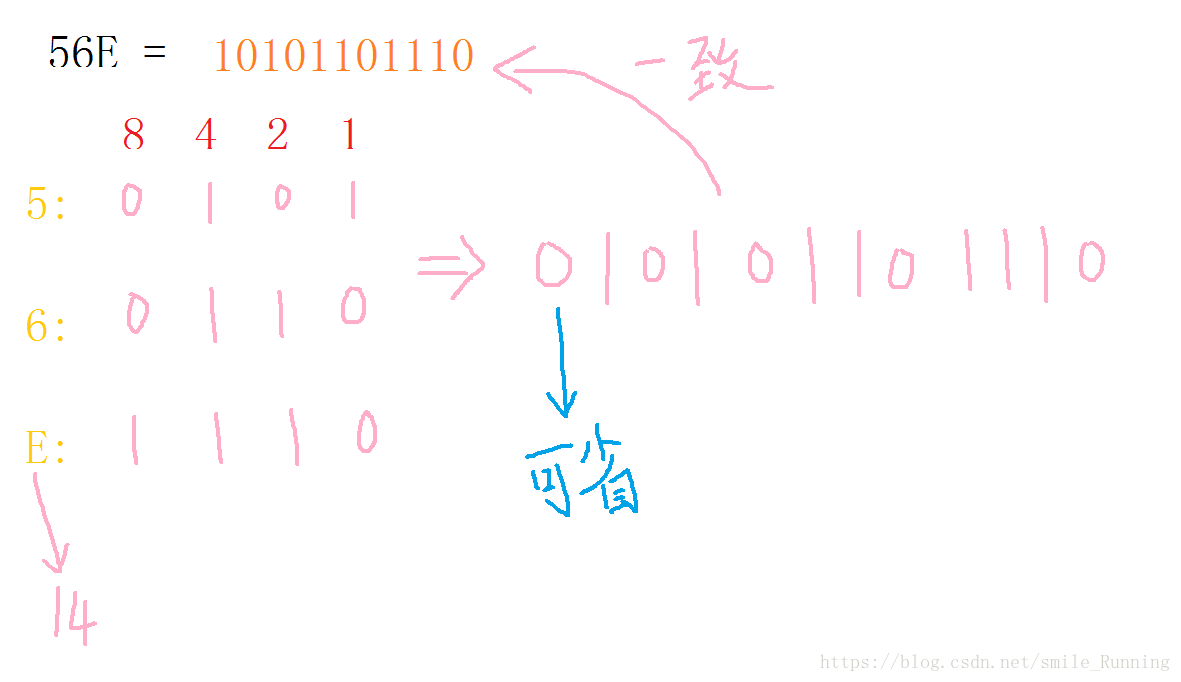 56E = 10101101110
一致
8 4 2 1
5: 0 1 0 1
6: 0 1 1 0
E: 1 1 1 0
⇒ 0 1 0 1 0 1 1 0 1 1 1 0
可省
14
https://blog.csdn.net/smile_Running